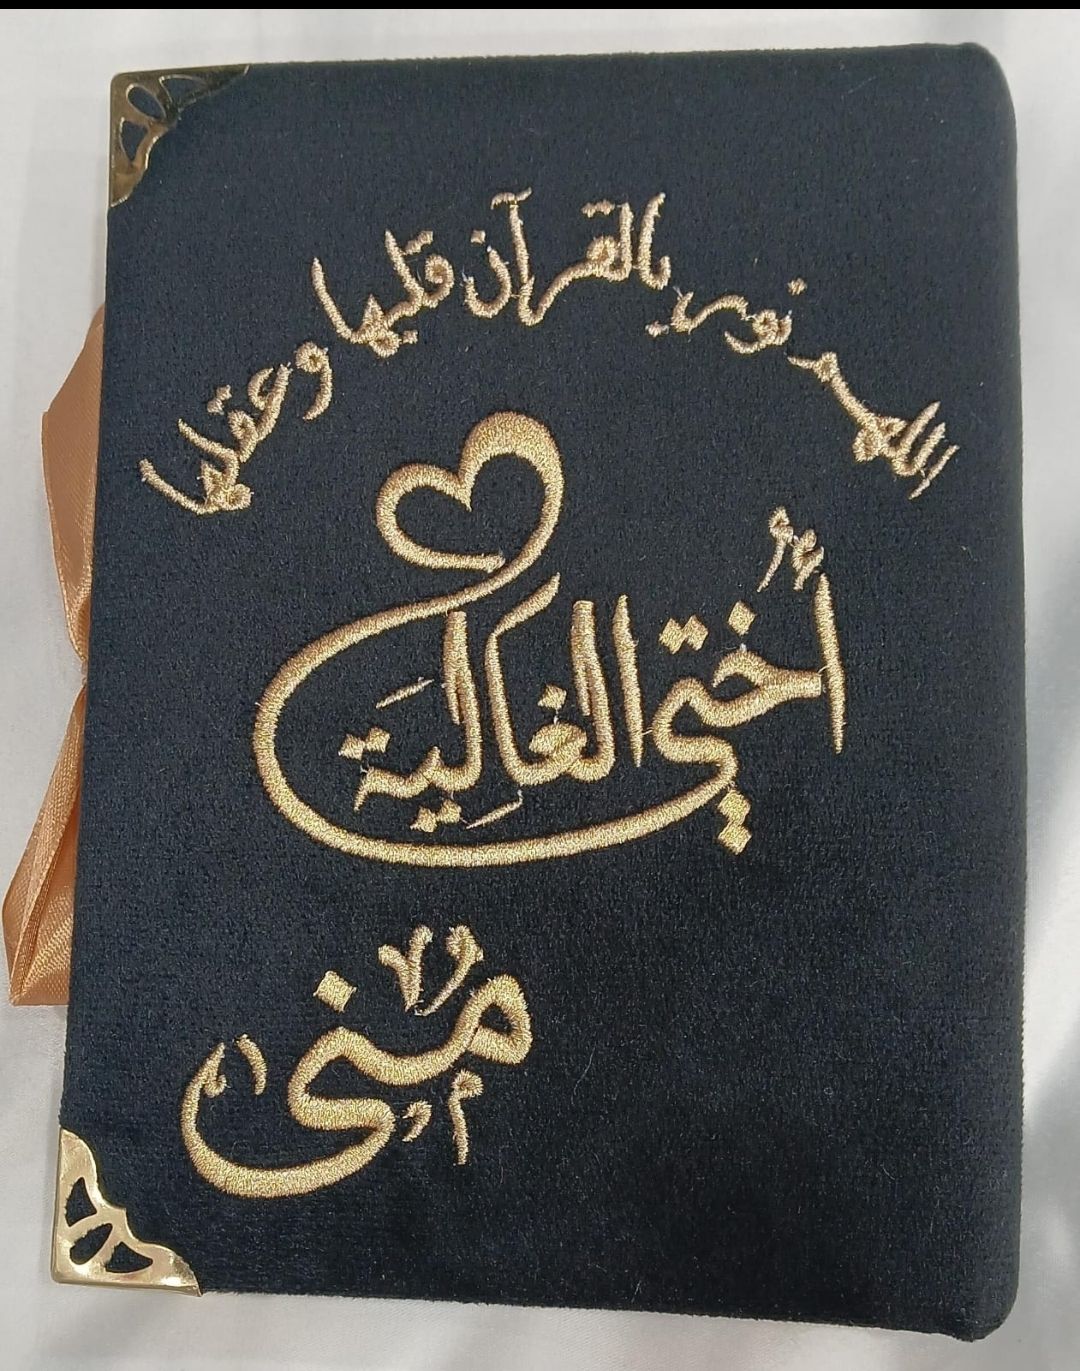 اللهم نور بالقرآن قلبها وعقلها
أختي الغالية
منى